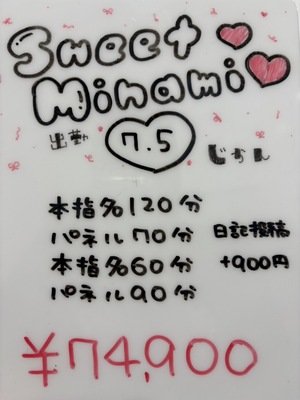 Sweet
Minami
出勤 7.5 じかん
本指名120分
パネル70分
本指名60分
パネル90分
日記投稿
+900円
¥74,900